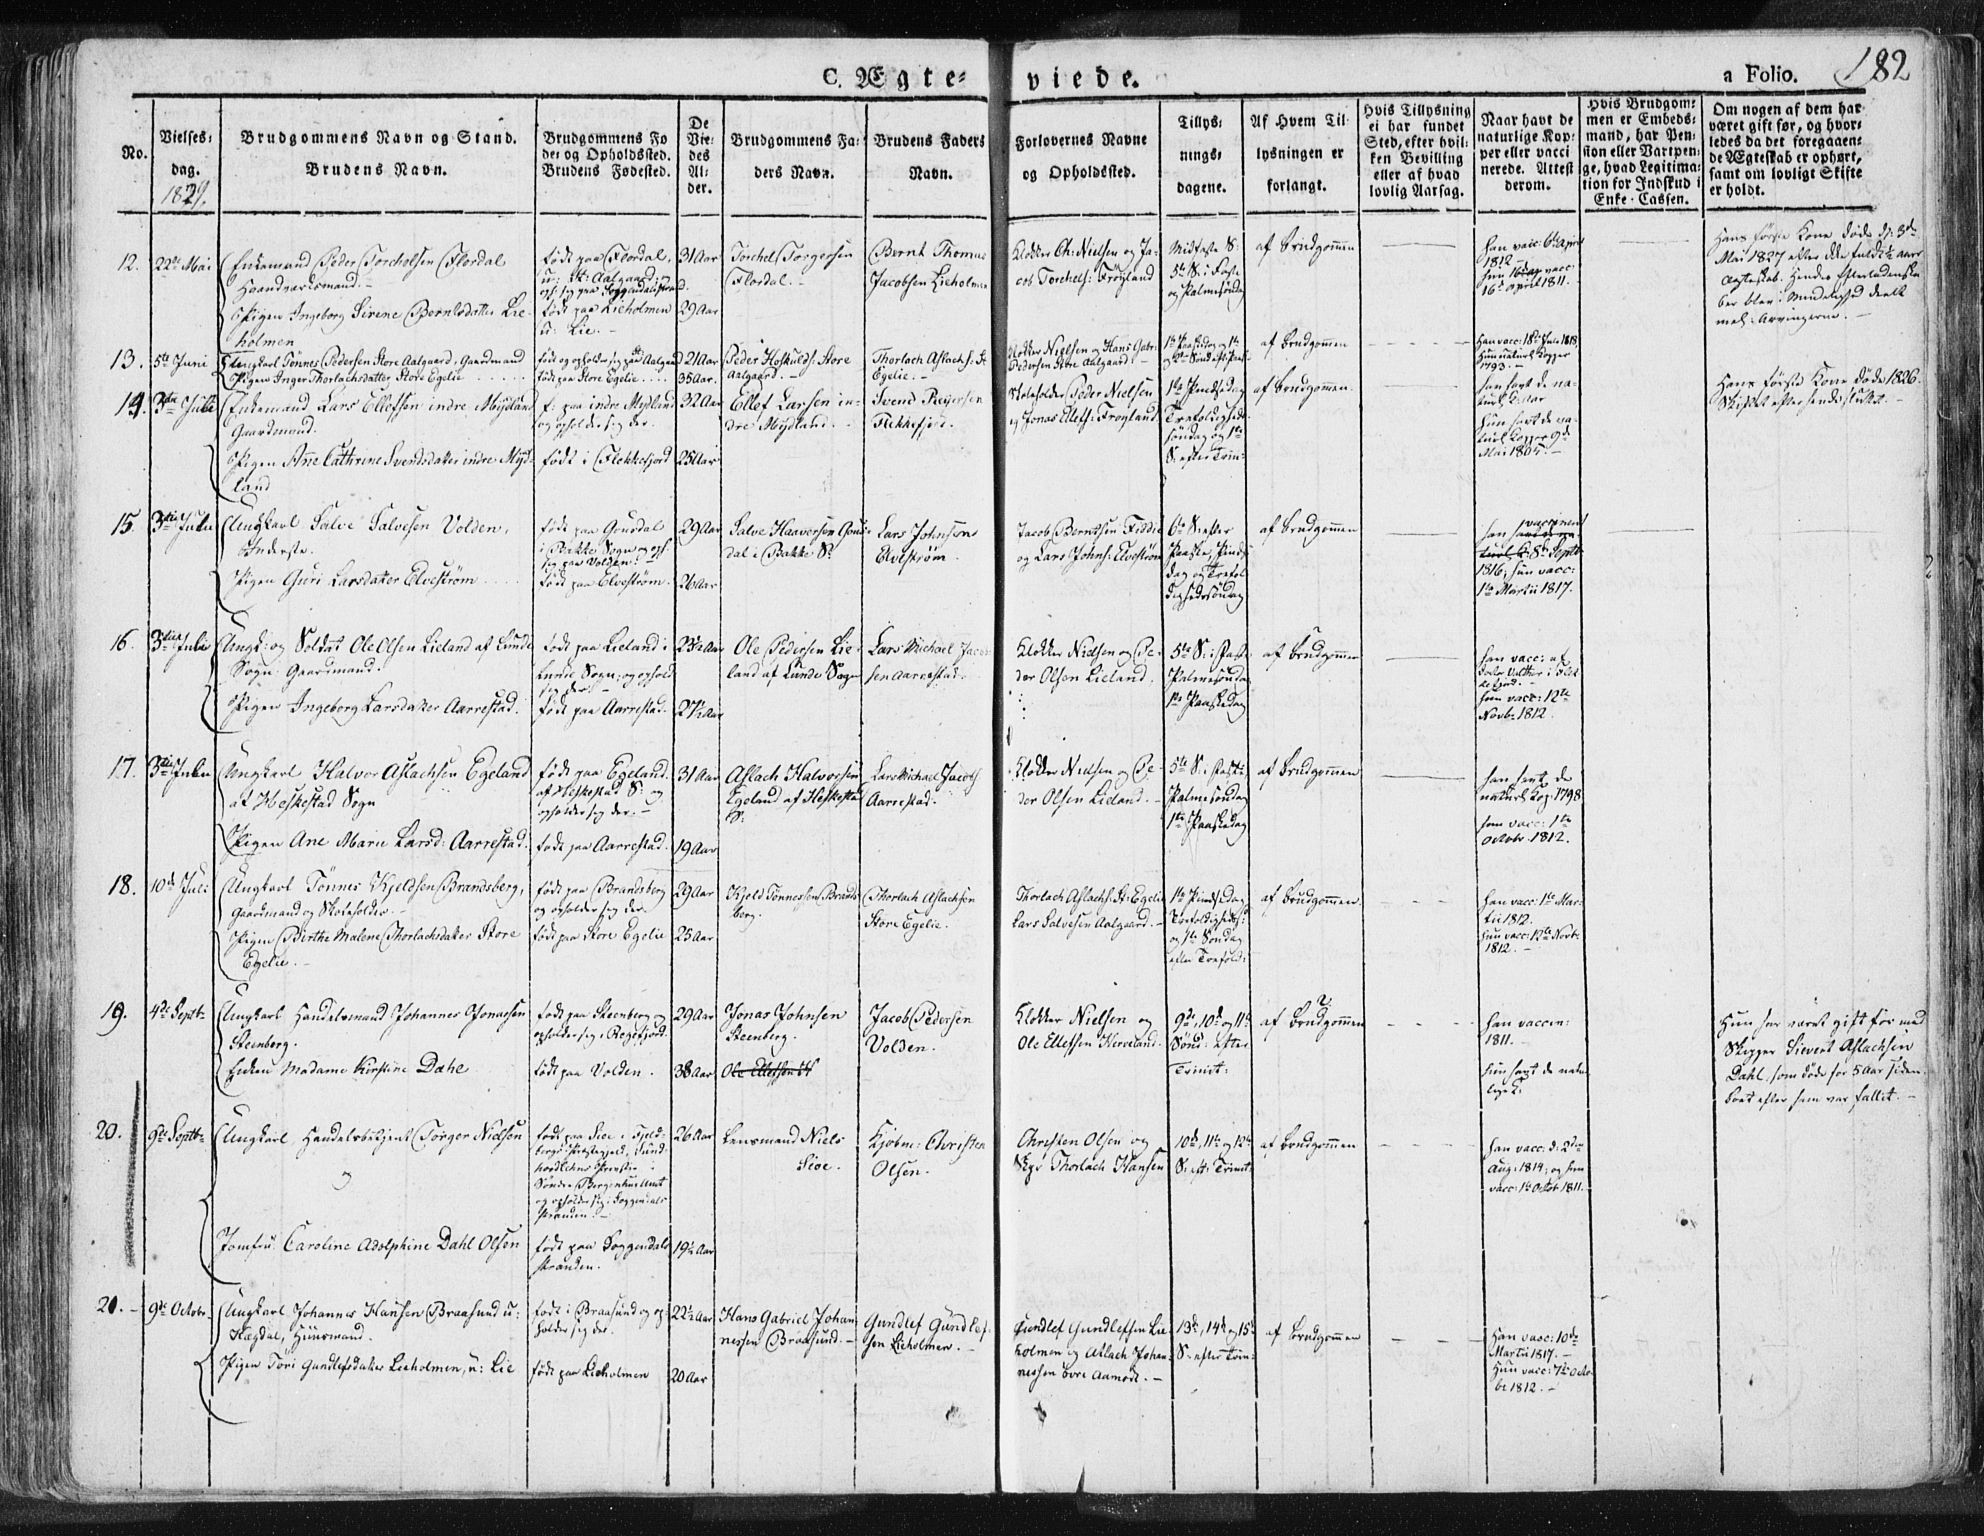 C. Ægte-
viede.
a Folio.
182
No.
Vielses-
dag.
1829.
Brudgommens Navn og Stand.
Brudens Navn.
Brudgommens Fø
de- og Opholdssted.
Brudens Fødested.
De
Vie-
des
Al-
der.
Brudgommens Fa-
ders Navn.
Brudens Faders
Navn.
Forlovernes Navne
og Opholdssted.
Tillys-
nings-
dagene.
Af Hvem Til-
lysningen er
forlangt.
Hvis Tillysning
ei har fundet
Sted, efter hvil-
ken Bevilling
eller af hvad
lovlig Aarsag.
Naar havt de
naturlige Kop-
per eller vacci
nerede. Attest
derom.
Hvis Brudgom-
men er Embeds-
mand, har Pen-
sion eller Vartpen-
ge, hvad Legitima-
tion for Indskud i
Enke-Cassen.
Om nogen af dem har
været gift før, og hvor-
ledes da det foregaaen-
de Ægteskab er ophørt,
samt om lovligt Skifte
er holdt.
12.
22de Mai
Enkemand Peder Torchelsen Flordal
Haandværksmand.
Pigen Ingeborg Sirene Berntsdatter Lie-
holmen
født paa Flordal,
u: St: Aalgaard; og
oph. sig paa Soggendalstrand.
født paa Lieholmen
u: Lie.
31 Aar
29 Aar
Torchel Torgersen
Flordal.
Bernt Thomas
Jacobsen Lieholmen
Klokker Ch: Nielsen og Ja-
cob Torchels: Frøyland
Midfaste S:
5te S: i Faste
og Palmesøndag
af Brudgommen
han vacc: 6te April
1812
hun vacc:
16de April 1811.
Hans første Kone døde d: 3de
Mai 1827 efter
Ægteskab. Hendes Efterladenska-
ber blev i Mindelighed deelt
mel: Arvingerne.
13.
5te Juni
Ungkarl Tønnes Pedersen Store Aalgaard, Gaardmand
Pigen Inger Thorlachsdatter Store Egelie
født og opholder sig paa St: Aalgaard
født paa Store Egelie
21 Aar
35 Aar.
Peder Hoskulds: Store
Aalgaard.
Thorlach Aslachs: St:
Egelie.
Klokker Nielsen og Hans Gabr:
Pedersen Store Aalgaard.
1te Paaskedag og 1te
og 2de Sønd: eft: Paaske
af Brudgommen
Han vacc: 18de Juli 1818
Hun naturl: Kopper
1793.
14.
3die Julii
Enkemand Lars Ellefsen indre Mydland
Gaardmand.
Pigen Ane Cathrine Svendsdatter indre Myd-
land
f: paa indre Mydland
og opholder sig der.
født i Flekkefjord
32 Aar
25 Aar
Ellef Larsen in-
dre Mydland.
Svend Reyersen
Flekkefjord.
Skoleholder Peder Nielsen
og Jonas Ellefs: Frøyland
1te Pindsedag
Trefoldigheds-
søndag og 1te
S: efter Trin:
af Brudgommen.
han havt de na-
turl:
hun havt de na-
turl: Kopper 9de
Mai 1805.
Hans første Kone døde 1826.
Skiftet efter hende sluttet.
15.
3die Julii
Ungkarl Salve Salvesen Volden,
Inderste.
Pigen Guri Larsdatter Elvestrøm
født paa Gousdal
i Bakke Sogn og oph:
sig paa Volden.
født paa Elvestrøm.
29 Aar
26 Aar
Salve Haaversen Gous-
dal i Bakke S:
Lars Johnsen
Elvestrøm
Jacob Berntsen Fiddie
og Lars Johns: Elvestrøm
6te S: efter
Paaske, Pinds
dag og Trefol
dighedssøndag
af Brudgommen
han vaccineret
8de Septb
1816, hun vacc:
1te Martii 1817.
16.
3die Julii
Ungk: og Soldat Ole Olsen Lieland af Lunde
Sogn. Gaardmand.
Pigen Ingeborg Larsdatter Aarrestad.
født paa Lieland i
Lunde Sogn; og ophold
sig der.
født paa Aarrestad.
23½ Aar
27½ Aar
Ole Pedersen Lie-
land af Lunde Sogn
Lars Michael Jacob-
sen Aarrestad.
Klokker Nielsen og Pe-
der Olsen Lieland.
5te S: i Faste
Palmesøndag
1te Paaskedag
af Brudgommen
han vacc: af
i Flek
kefjord.
hun vacc: 12te
Novbr 1812.
17.
3die Julii
Ungkarl Halvor Aslachsen Egeland
af Heskestad Sogn
Pigen Ane Marie Larsd: Aarrestad.
født paa Egeland
af Heskestad S: og
opholder sig der.
født paa Aarrestad.
31 Aar
19 Aar
Aslach Halvorsen
Egeland af Heskestad
S:
Lars Michael Jacobs:
Aarrestad.
Klokker Nielsen og Pe-
der Olsen Lieland.
5te S: i Faste,
Palmesøndag
1te Paaskedag
af Brudgommen
han havt de
naturl: Kop: 1798
hun vacc: 1te
Octobr 1812.
18.
10de Juli
Ungkarl Tønnes Kjeldsen Brandsberg,
Gaardmand og Skoleholder.
Pigen Birthe Malene Thorlachsdatter Store
Egelie.
født paa Brandsberg
og opholder sig der.
født paa Store Egelie
29 Aar
25 Aar
Kjeld Tønnessen Brands
berg.
Thorlach Aslachsen
Store Egelie.
Thorlach Aslachs: St: Egelie
Lars Salvesen Aalgaard.
1te Pindsedag
Trefoldigheds:
og 1te Søndag
efter Trefold:
af Brudgommen.
han vacc: 1te Mar-
tii 1812.
hun vacc: 12te Novbr
1812.
19.
4de Septbr
Ungkarl Handelsmand Johannes Jonassen
Steenberg.
Enken Madame Kirstine Dahl
født paa Steenberg og
opholder sig i Regefjord.
født paa Volden.
29 Aar
38 Aar
Jonas Johnsen
Steenberg.
Ole Ellefsen
Jacob Pedersen
Volden.
Klokker Nielsen og
Ole Ellefsen Kerveland.
9de, 10de og 11te
Sønd: efter
Trinit:
af Brudgommen
han vaccin:
1811.
hun havt de natur-
lige K:
Hun har været gift før med
Skipper Sivert Aslachsen
Dahl, som døde for 5 Aar siden.
Boet efter ham var fallit.
20.
9de Septbr
Ungkarl Handelsbetjent Torger Nielsen
Jomfru Caroline Adolphine Dahl Olsen
født paa Sioe i Fjeld-
bergs Præstegjeld, Sund-
hordlehns Provstie i
Søndre Bergenhuus Amt
og opholder sig i Soggendals
stranden.
født paa Soggendals
stranden.
26 Aar
19½ Aar
Lensmand Niels
Sioe.
Kjøbm: Christen
Olsen.
Christen Olsen og
Skp: Thorlach Hansen
10de, 11te og 12te
S: eft: Trinit:
af Brudgommen
han vacc: d: 2den
Aug: 1814; og hun
vacc: 1te Octob: 1811.
21.
9de Octobr
Ungkarl Johannes Hansen Braasund u:
Hægdal, Huusmand.
Pigen Tøri Gundlefsdatter Lieholmen, u: Lie
født i Braasund og op-
holder sig der.
født paa Lieholmen
22½ Aar
20 Aar
Hans Gabriel Johan-
nessen Braasund.
Gundlef Gundlef-
sen Lieholmen.
Gundlef Gundlefsen Lie-
holmen og Aslach Johan-
nessen øvre Aamodt.
13de, 14de og 15de
S: efter Trin:
af Brudgommen
Han vacc: 10de
Martii 1817.
Hun vacc: 7de Octo-
br 1812.